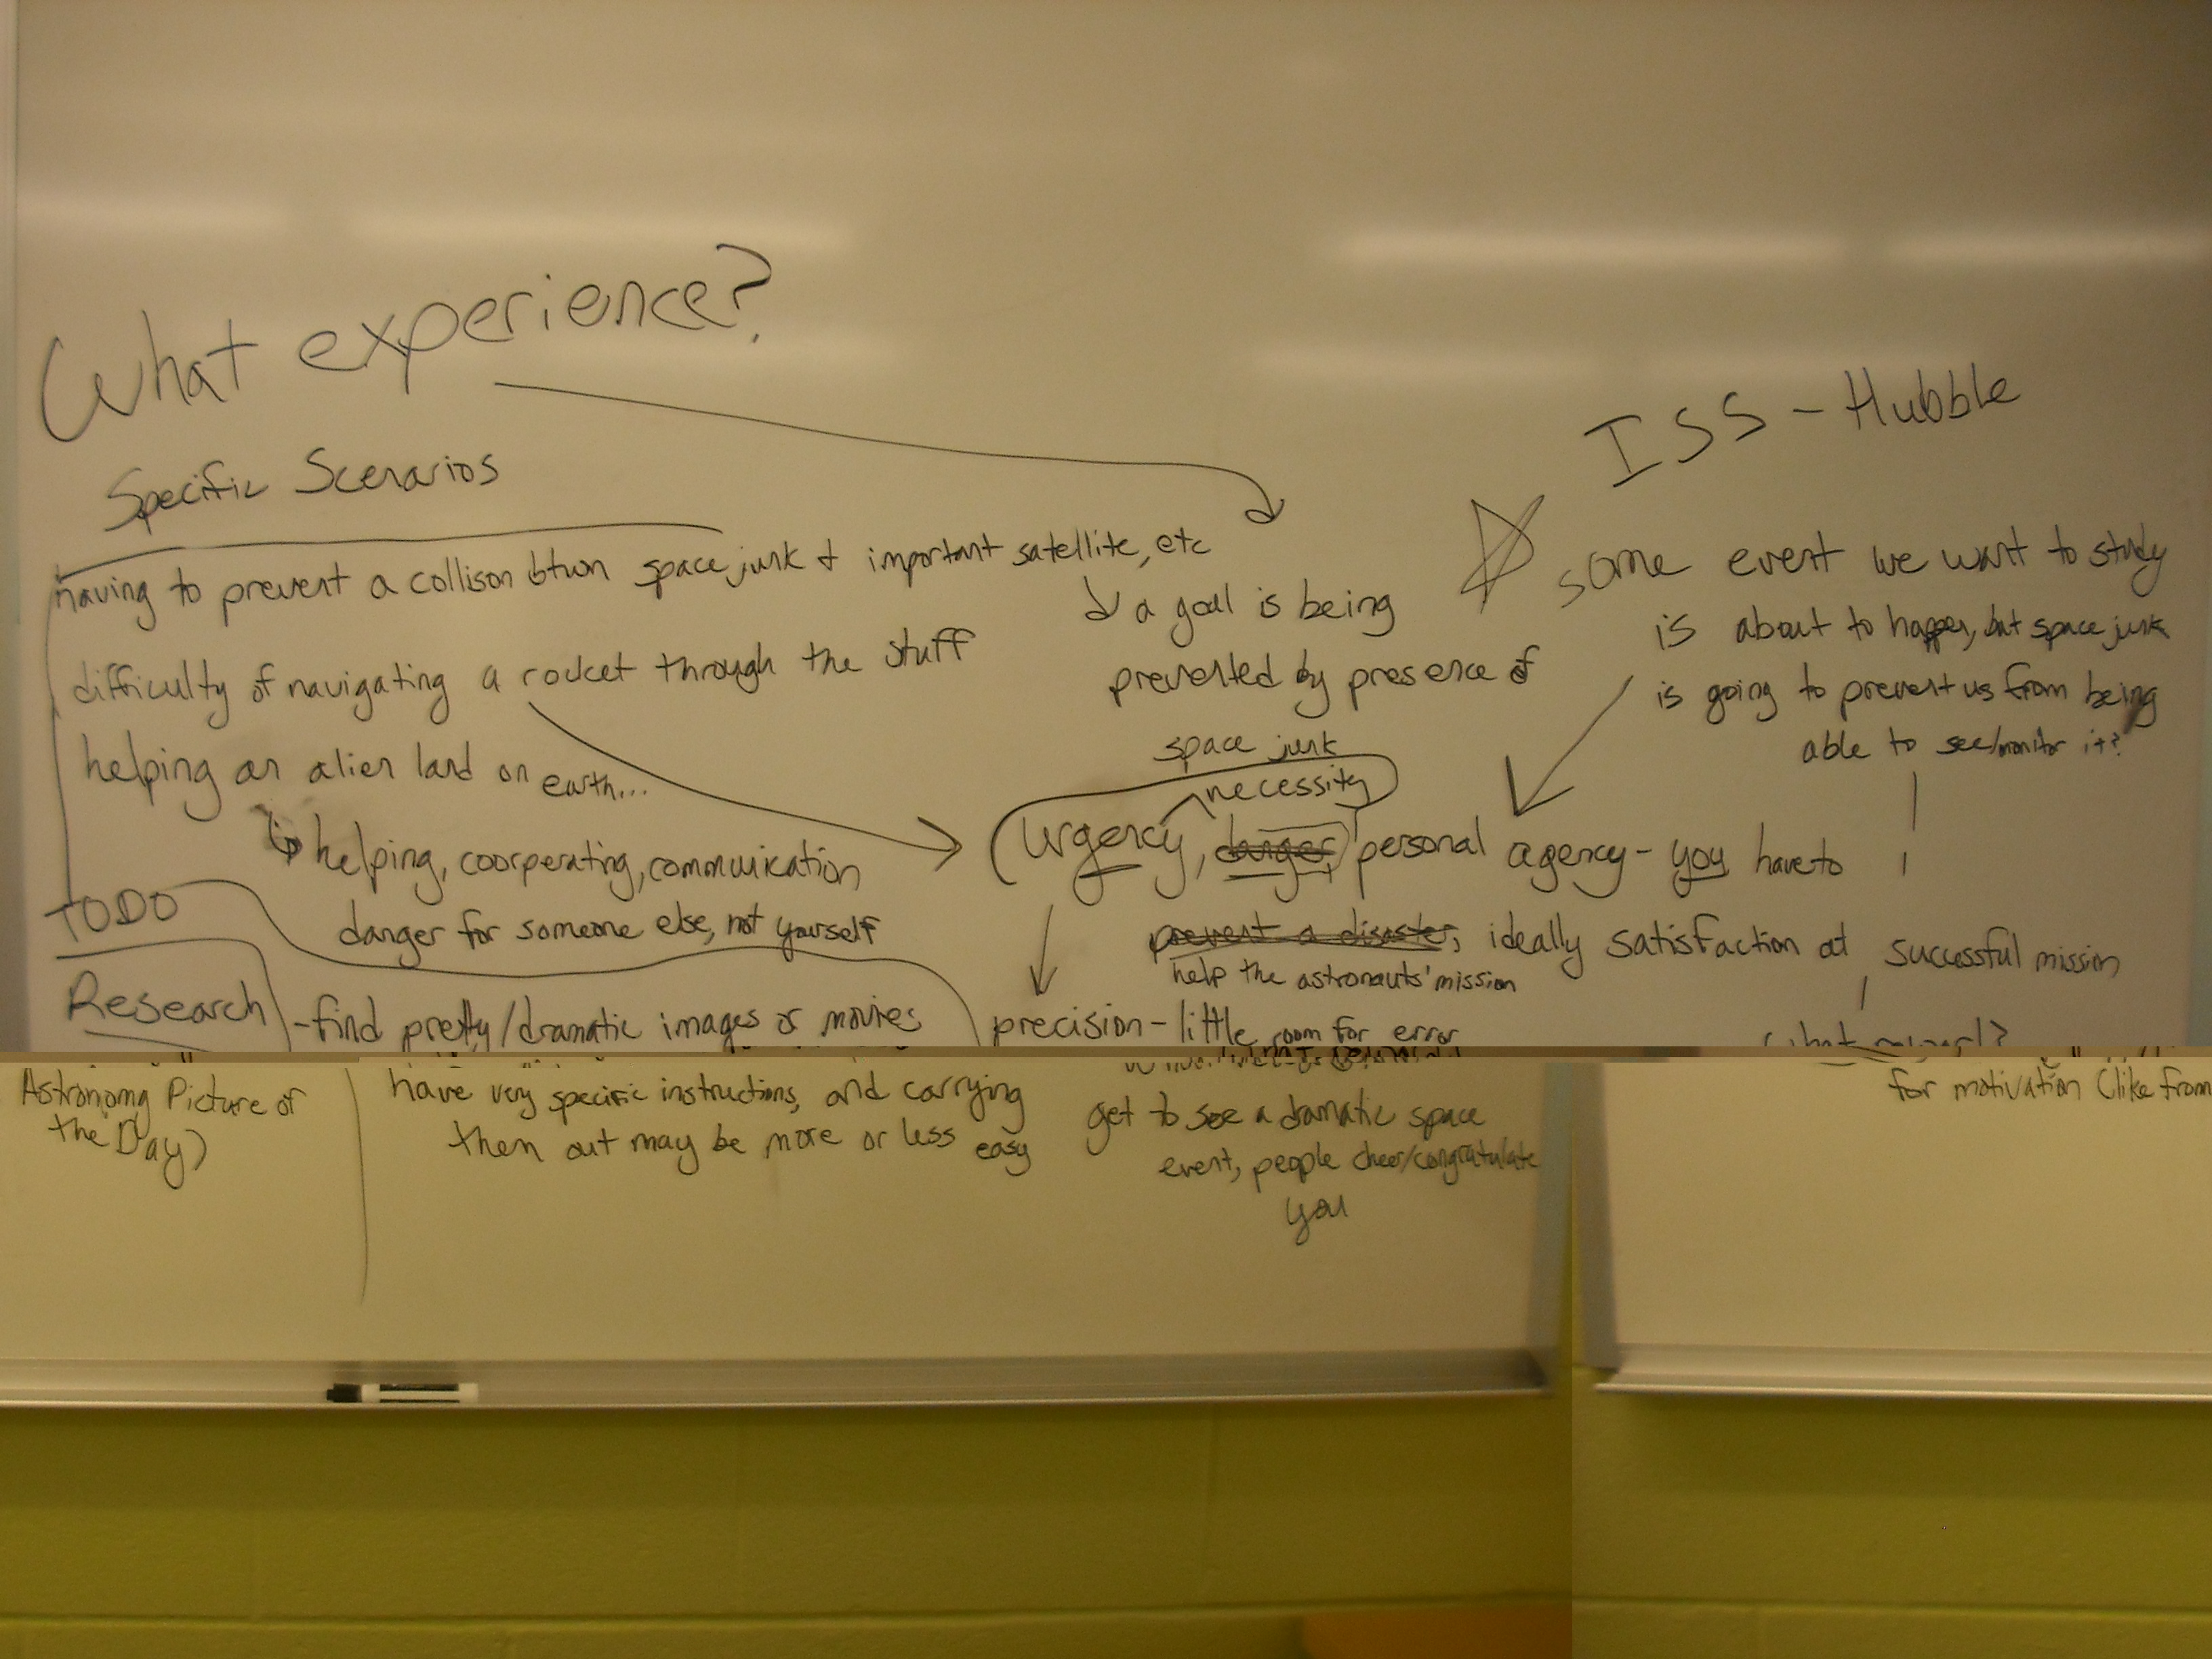 What experience?
Specific Scenarios
having to prevent a collison btwn space junk + important satellite, etc
difficulty of navigating a rocket through the stuff
helping an alien land on earth...
helping, coorperating, communication
danger for someone else, not yourself
TODO
Research
-find pretty/dramatic images or movies
ISS - Hubble
some event we want to study
is about to happen, but space junk
is going to prevent us from being
able to see/monitor it?
a goal is being
prevented by presence of
space junk
necessity
urgency, danger, personal agency - you have to
prevent a disaster, ideally satisfaction at successful mission
help the astronauts' mission
precision - little room for error
Astronomy Picture of
the Day)
have very specific instructions, and carrying
them out may be more or less easy
get to see a dramatic space
event, people cheer/congratulate
you
for motivation (like from